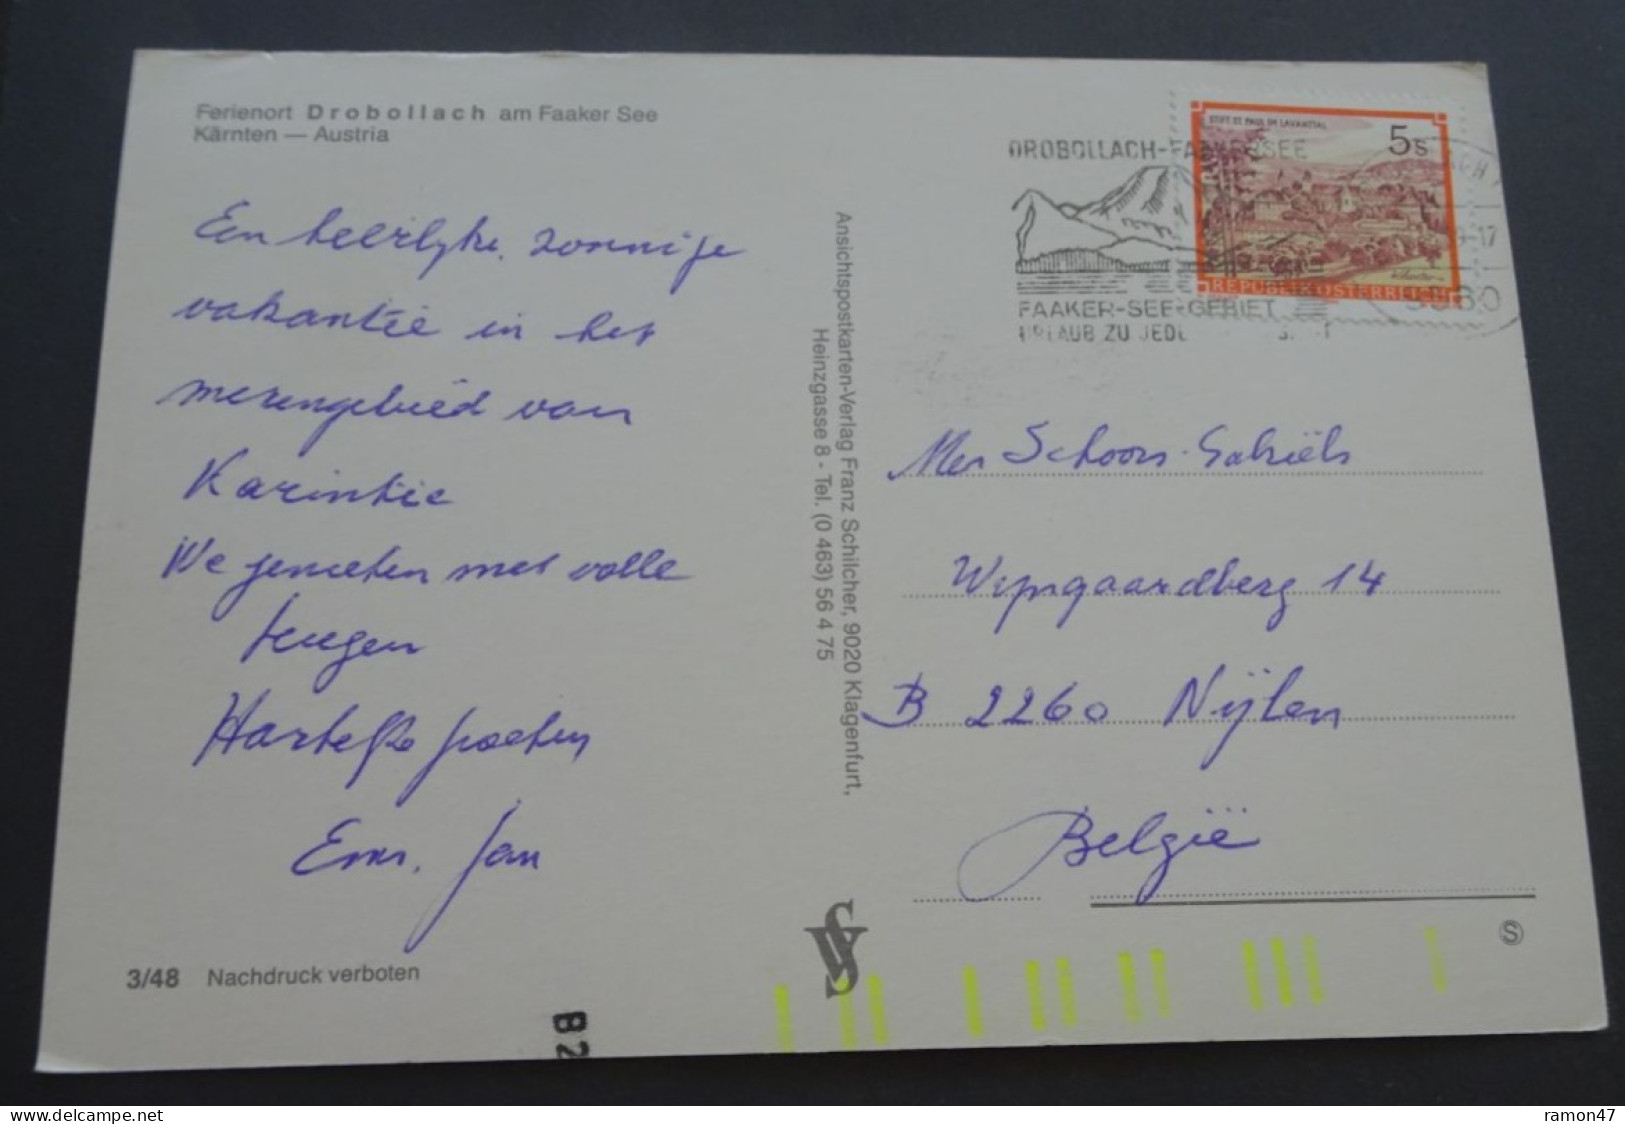 Ferienort Drobollach am Faaker See
Kärnten — Austria
Een heerlijke, zonnige
vakantie in het
merengebied van
Karintië
We genieten met volle
teugen
Hartelijke groeten
Emm. Jan
3/48 Nachdruck verboten
B2
Ansichtspostkarten-Verlag Franz Schilcher, 9020 Klagenfurt,
Heinzgasse 8 - Tel. (0 463) 56 4 75
DROBOLLACH-FAAKERSEE
FAAKER-SEE-GEBIET
URLAUB ZU JEDE
STIFT ST. PAUL IM LAVANTTAL
5 S
REPUBLIK ÖSTERREICH
Mer Schoors-Gabriëls
Wijngaardberg 14
B 2260 Nijlen
België
S
delcampe.net
ramon47